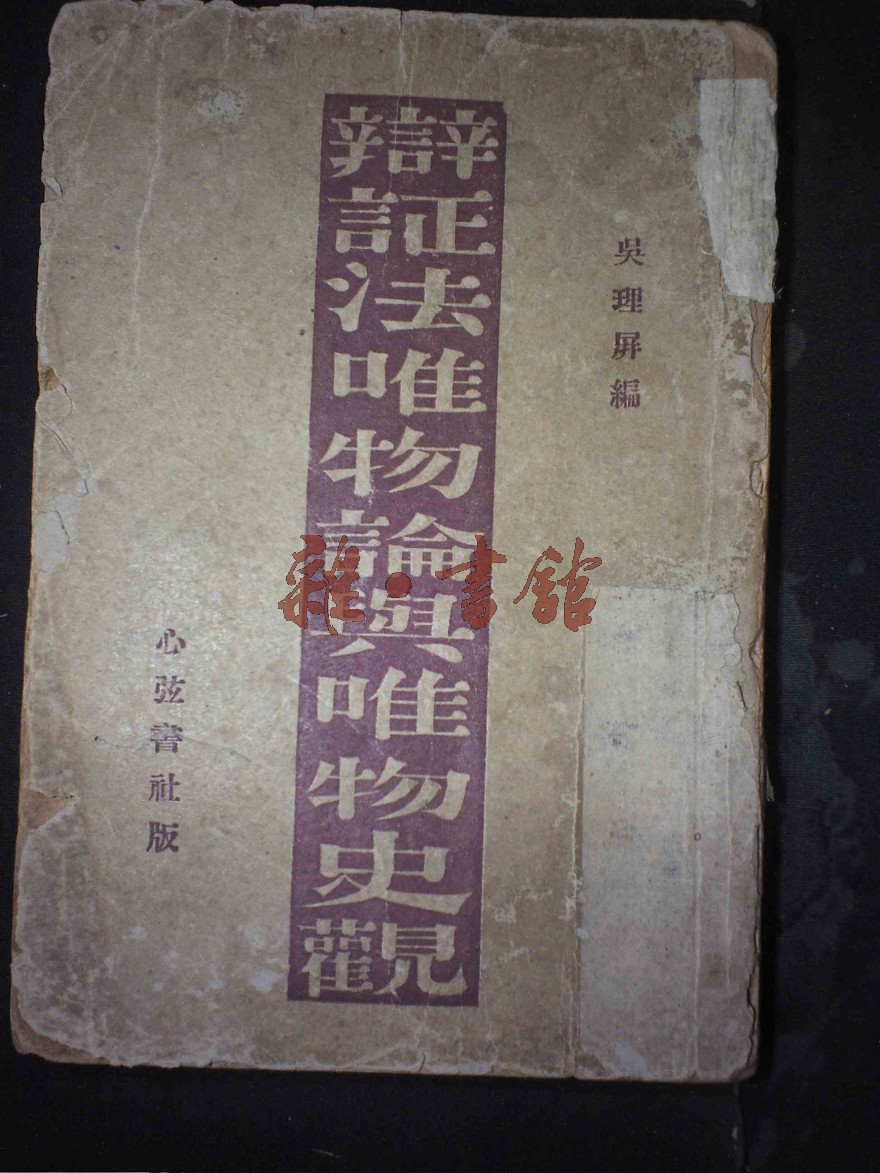 吳理屏編
辯証法唯物論與唯物史觀
心弦書社版
雜·書館